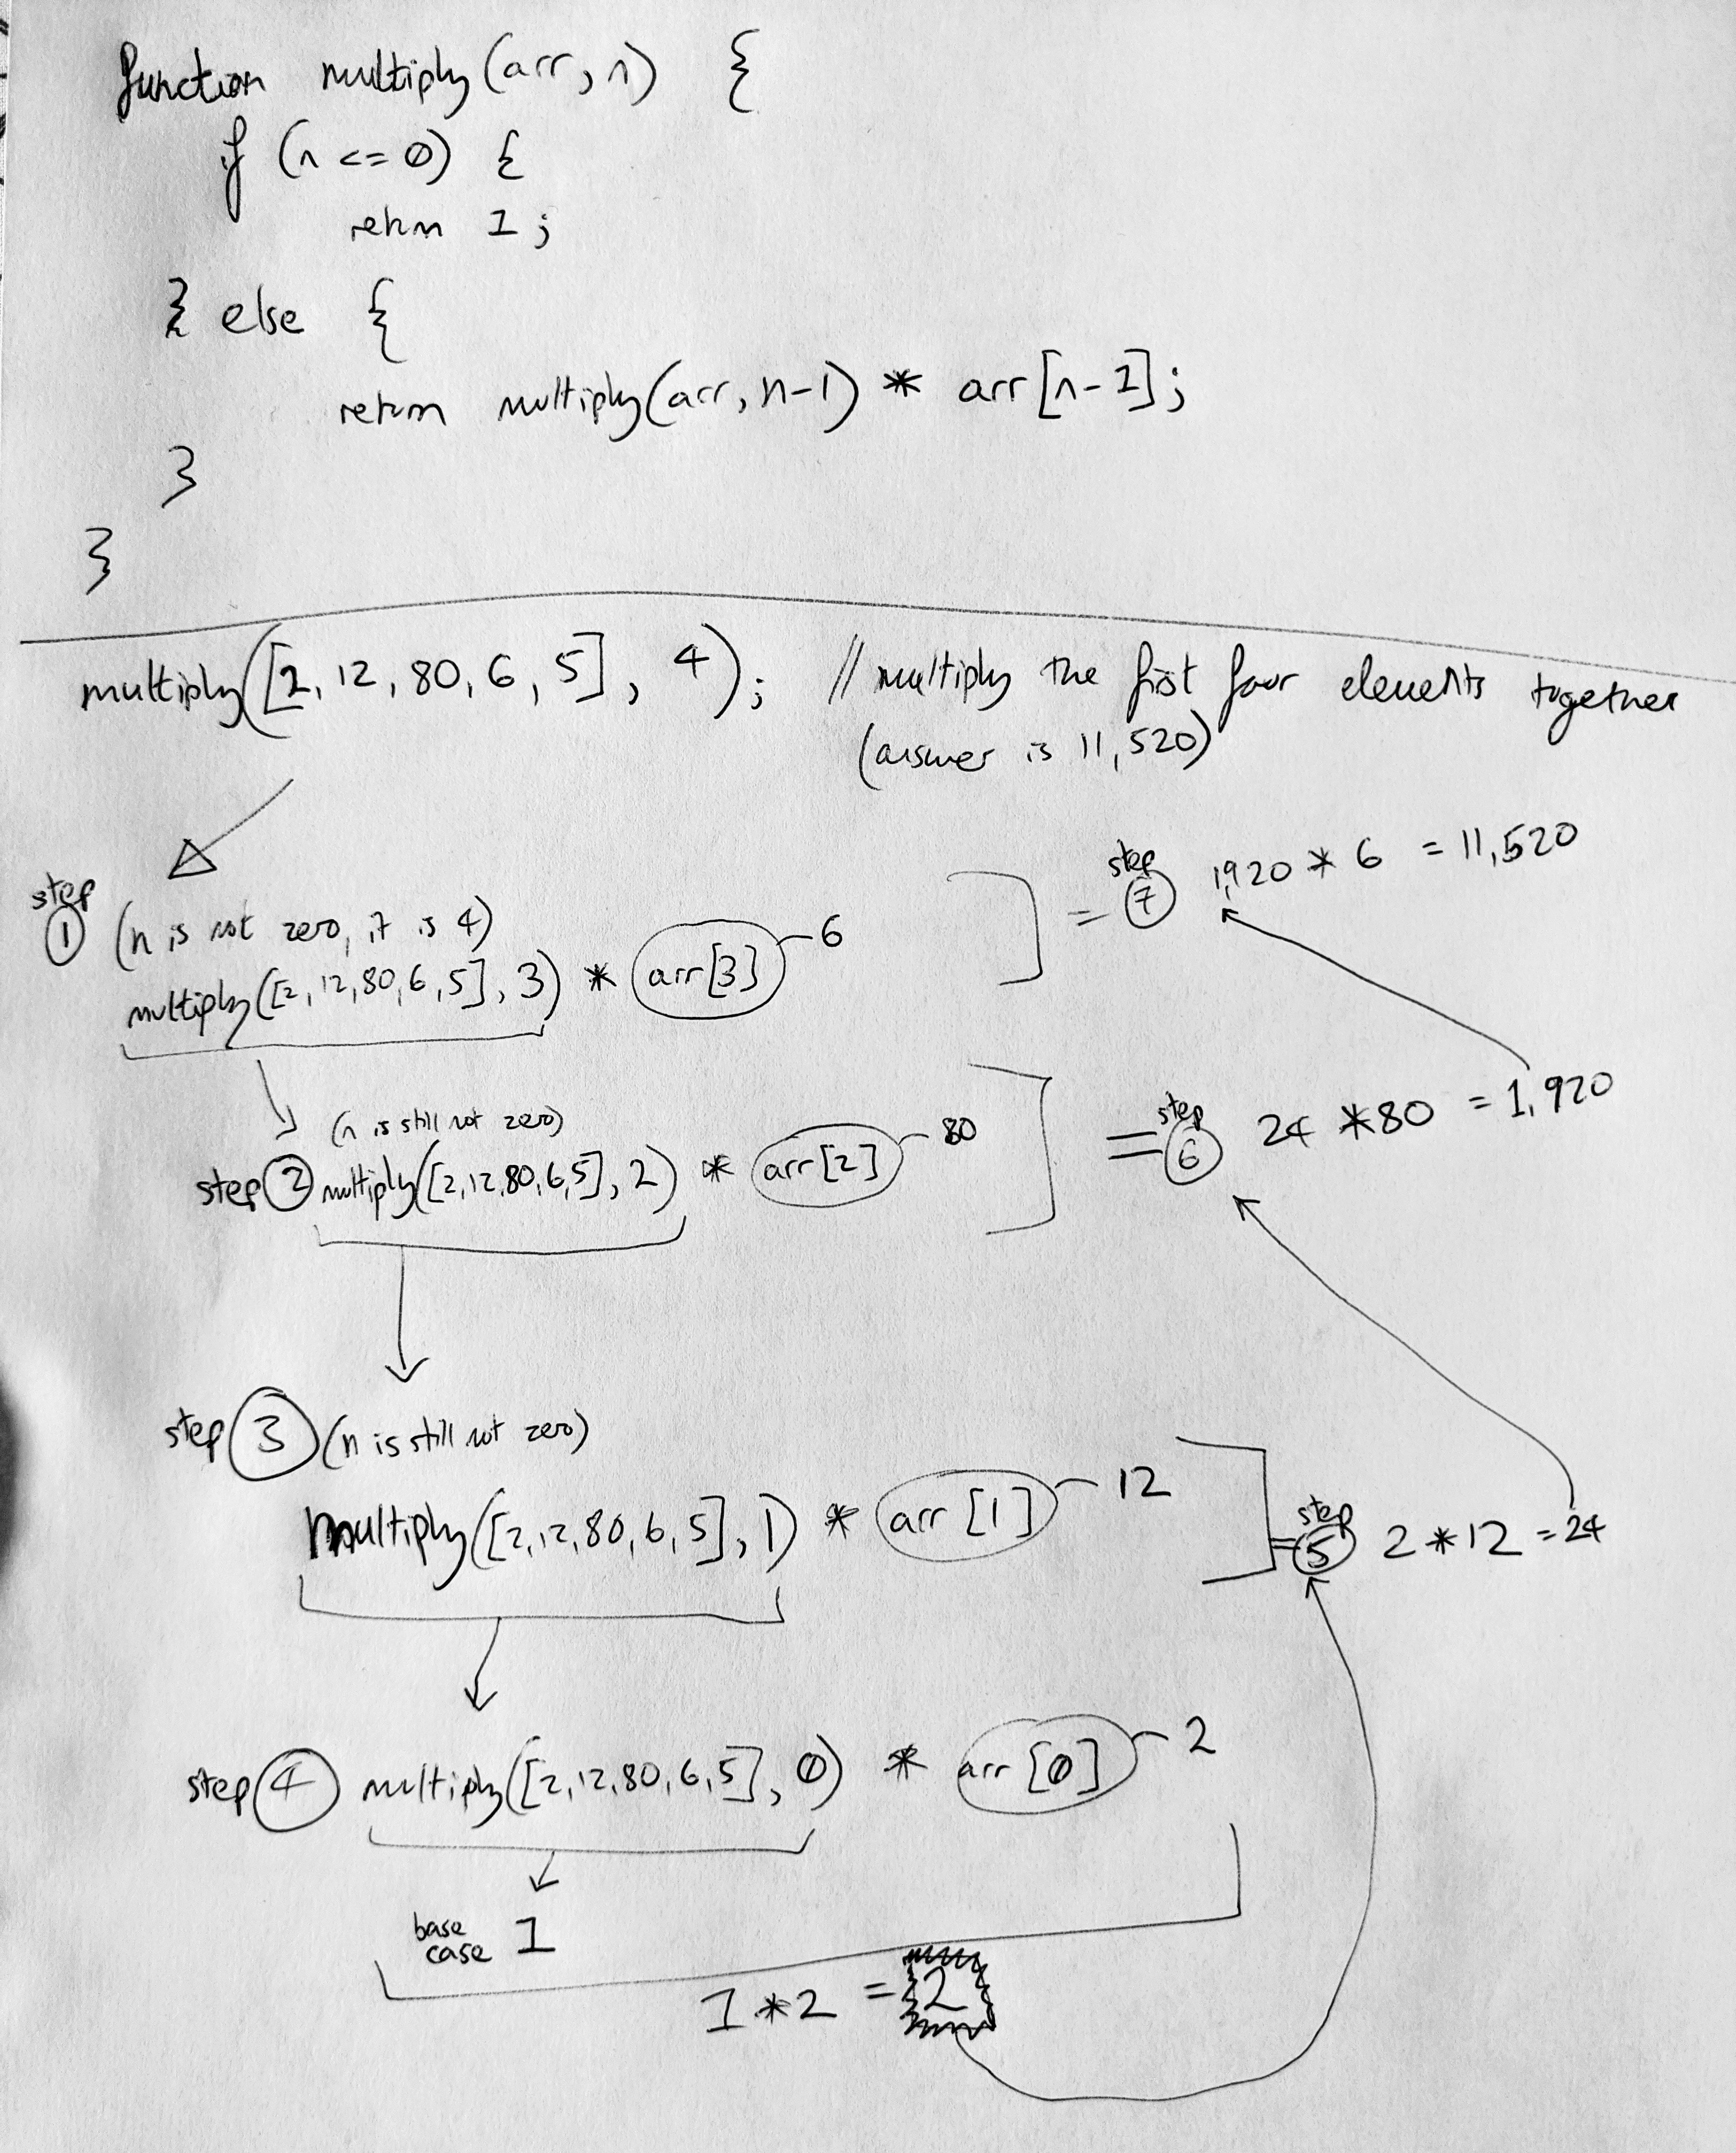 function multiply(arr, n) {
if (n <= 0) {
return 1;
} else {
return multiply(arr, n-1) * arr[n-1];
}
}
multiply([2, 12, 80, 6, 5], 4); // multiply the first four elements together
(answer is 11,520)
step
1 (n is not zero, it is 4)
multiply([2, 12, 80, 6, 5], 3) * arr[3] 6
= step 7 1,920 * 6 = 11,520
(n is still not zero)
step 2 multiply([2, 12, 80, 6, 5], 2) * arr[2] 80
= step 6 24 * 80 = 1,920
step 3 (n is still not zero)
multiply([2, 12, 80, 6, 5], 1) * arr[1] 12
= step 5 2 * 12 = 24
step 4 multiply([2, 12, 80, 6, 5], 0) * arr[0] 2
base
case 1
1 * 2 = 2